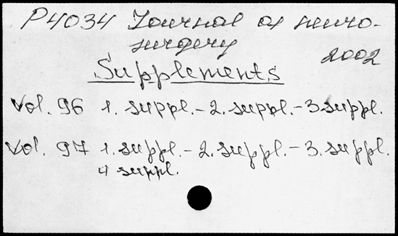 P4034 Journal of neuro-
surgery
2002
Supplements
Vol. 96 1. suppl. - 2. suppl. - 3. suppl.
Vol. 97 1. suppl. - 2. suppl. - 3. suppl.
4 suppl.